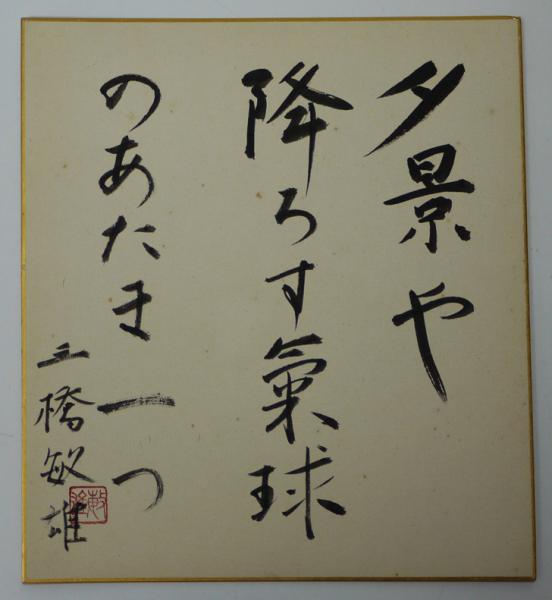 夕景や
降ろす氣球
のあたま一つ
三橋敏雄